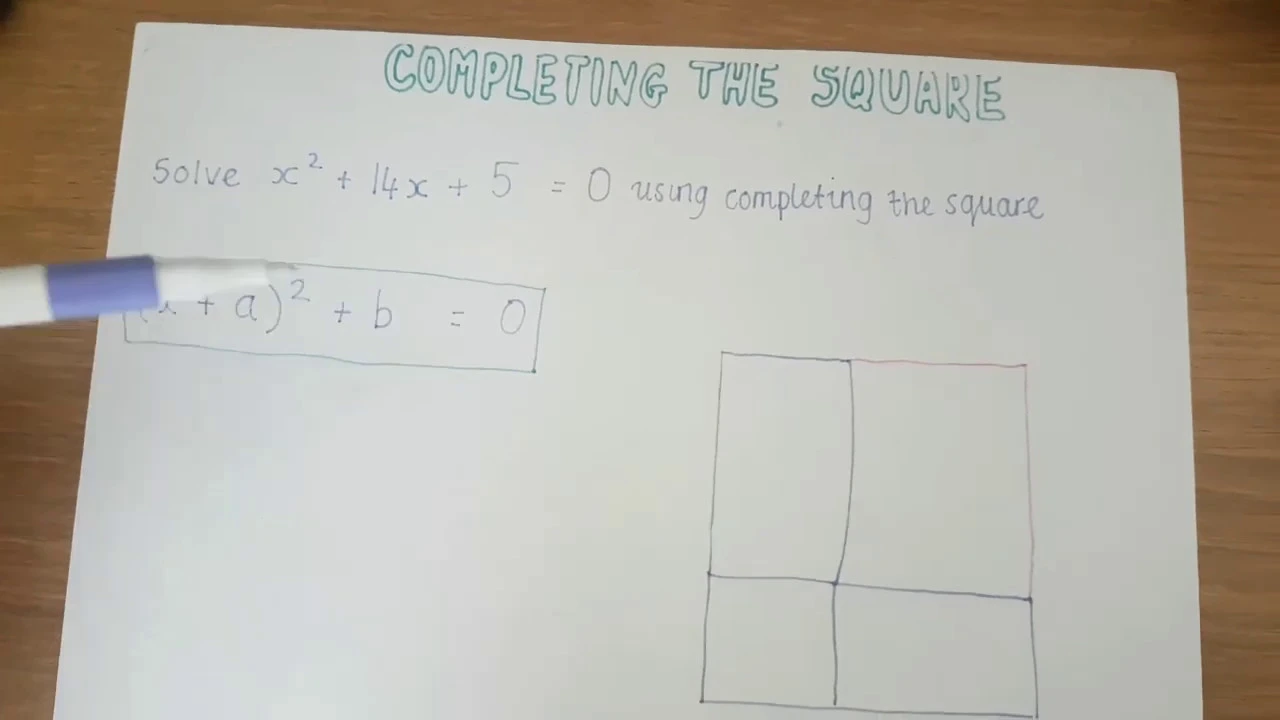 COMPLETING THE SQUARE
Solve x² + 14x + 5 = 0 using completing the square
+ a)² + b = 0